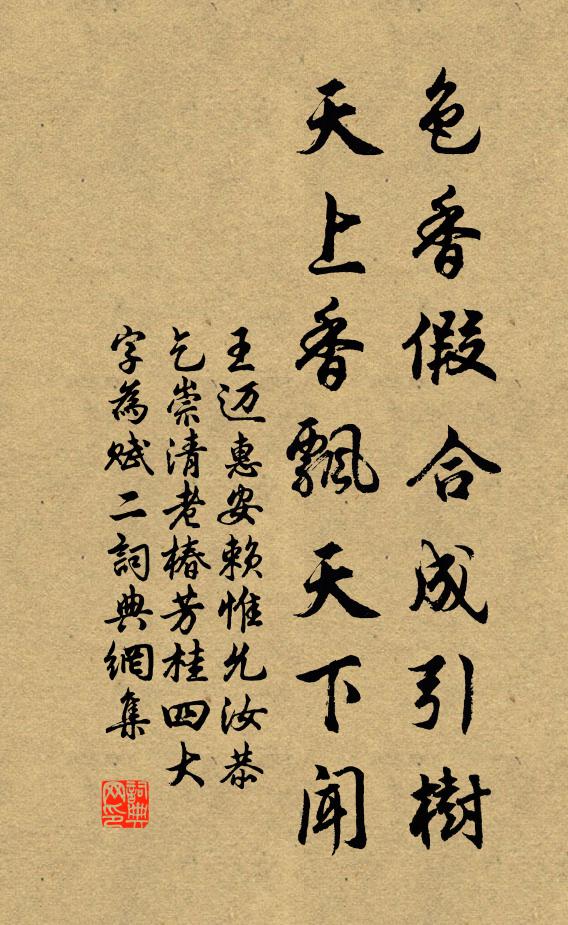 色香假合成引樹
天上香飄天下闻
王迈惠安赖惟允汝恭
乞崇清老椿芳桂四大
字為赋二詞典網集
詞典网印